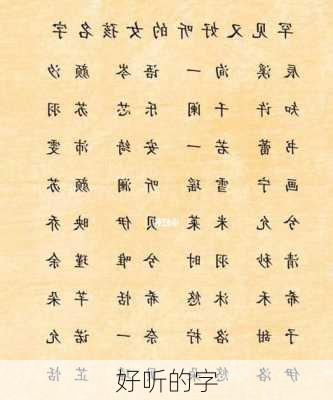 罕见又好听的女孩名字
辰溪 一洵 语岑 颜汐
知许 千阑 乐芯 苏羽
书蕾 若一 安绮 沛雯
画宁 雪瑶 听澜 颜苏
兮允 米莱 贝伊 映乔
清秒 羽时 兮唯 瑾余
希禾 沐悠 希恬 芊朵
予甜 洛柠 奈一 诺允
伊洛 芷恬
好听的字